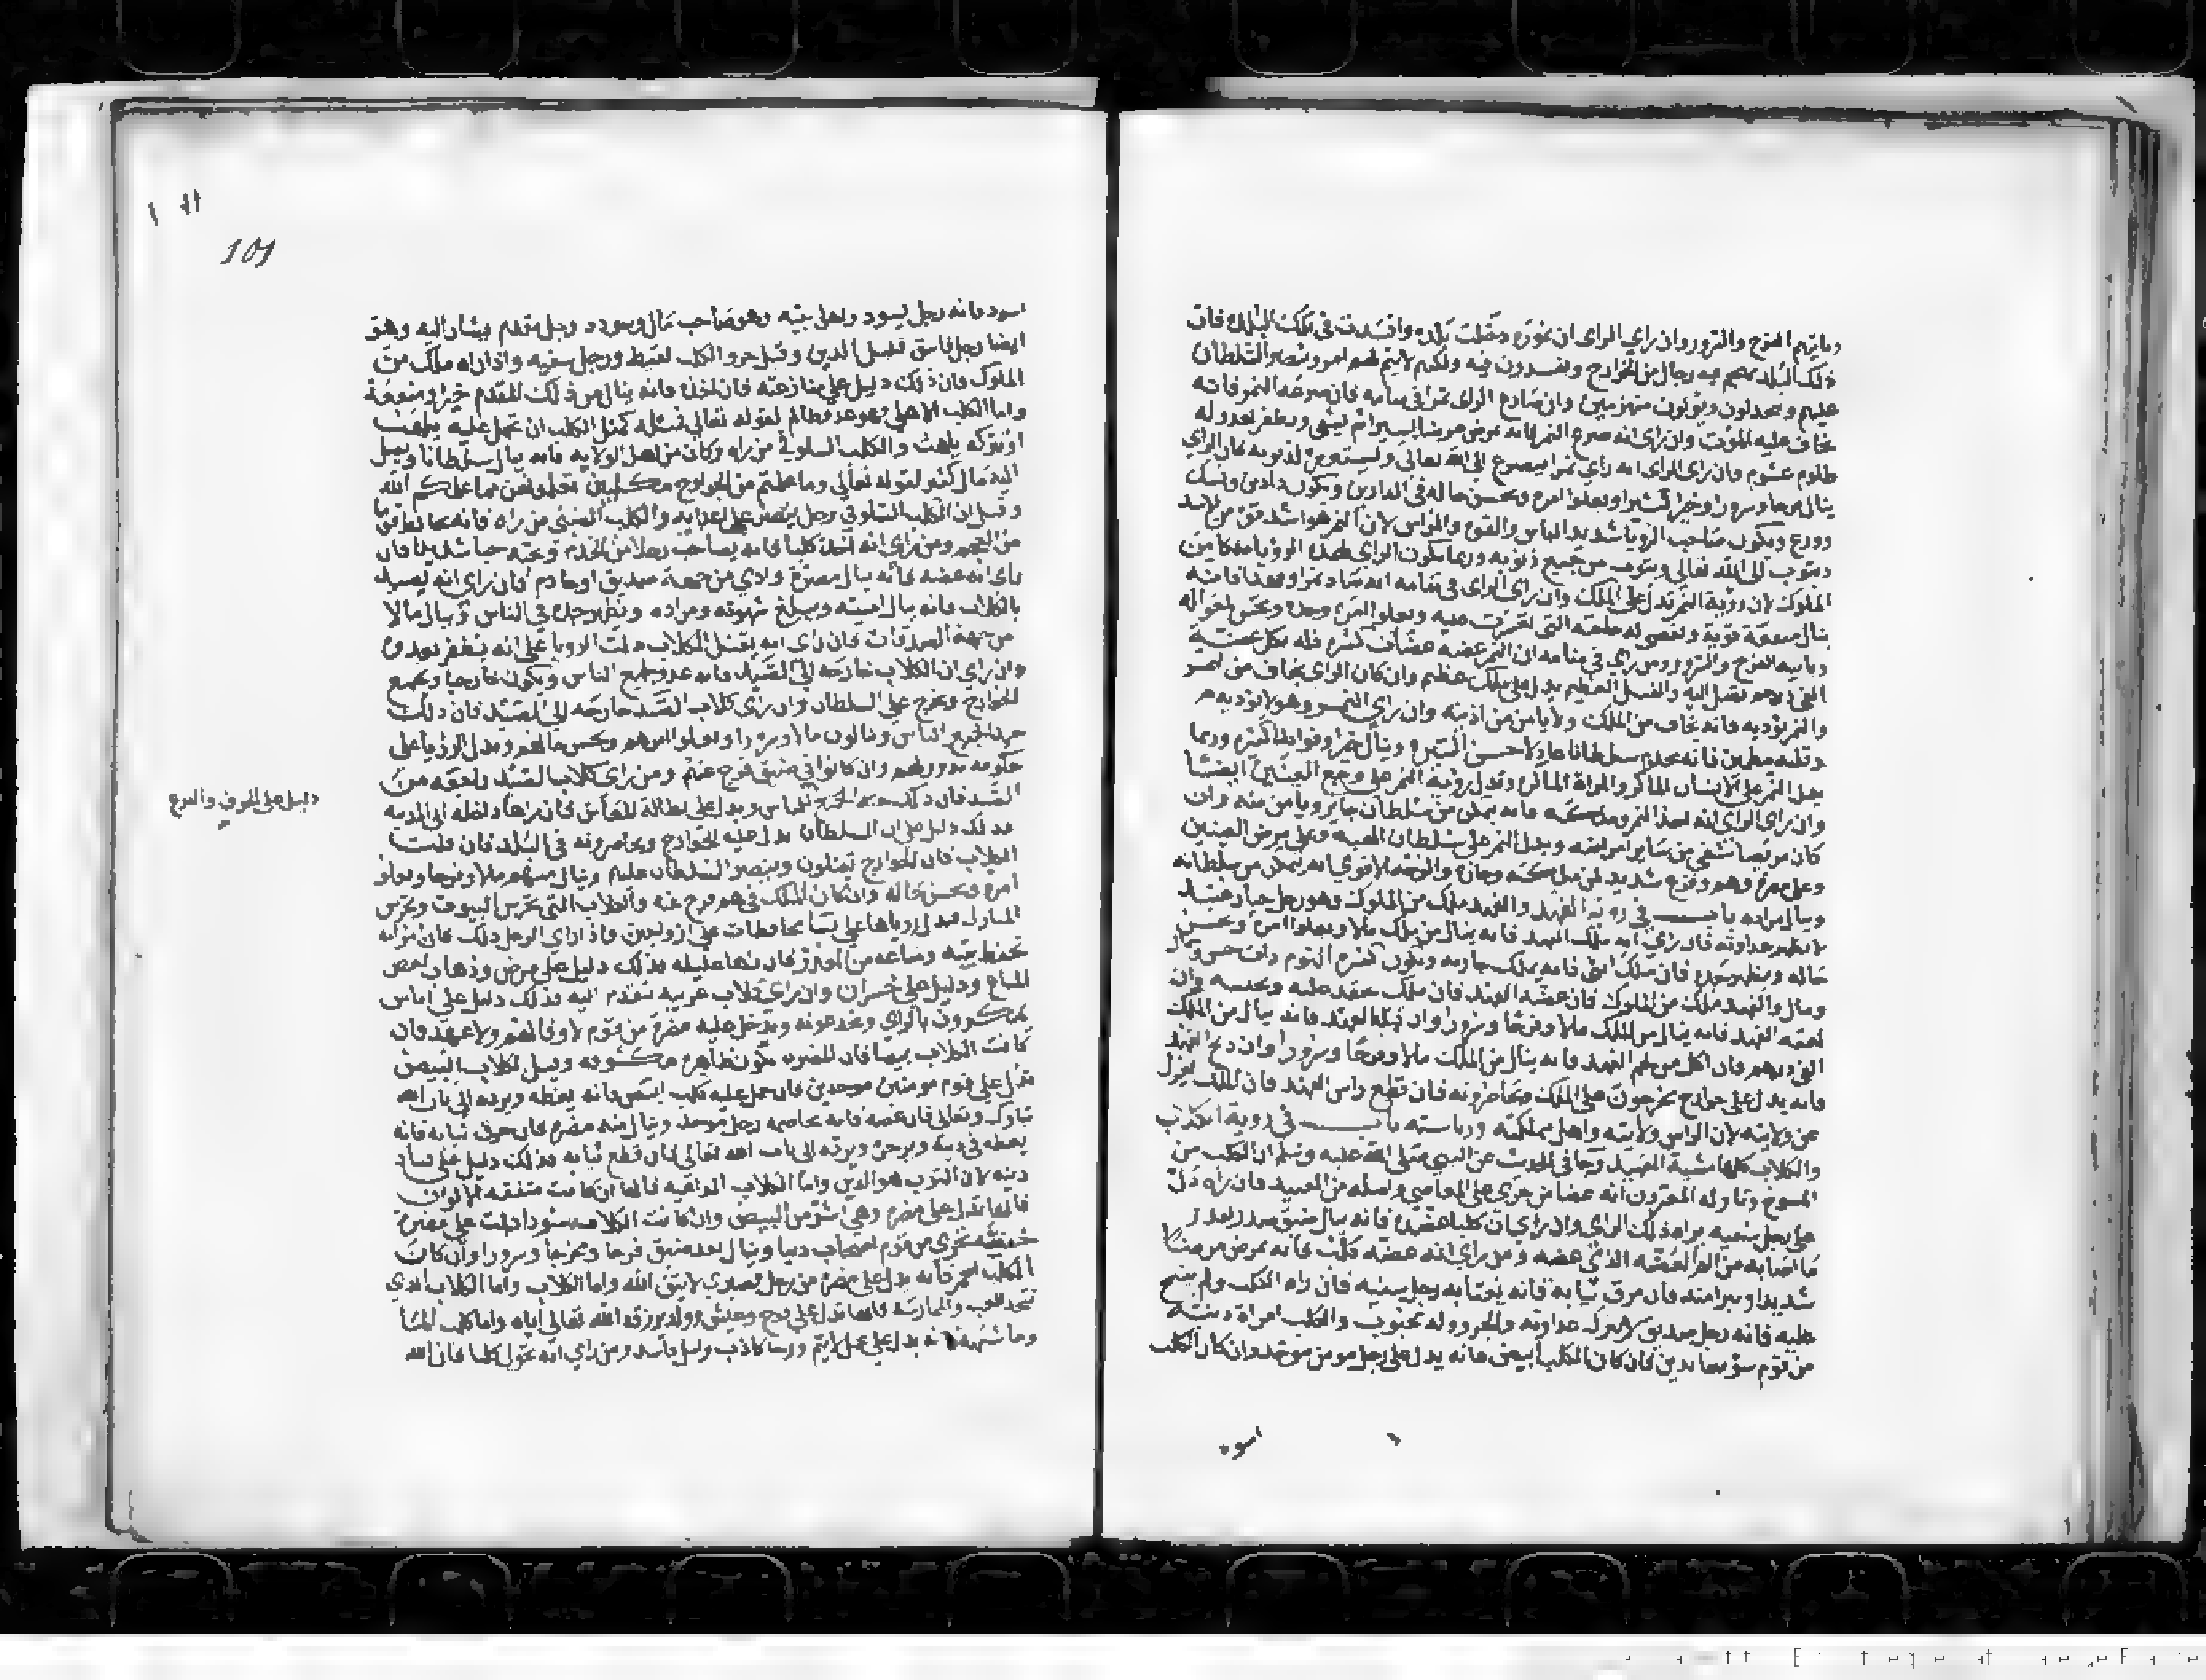 وياتيهم الفرج والسرور وان راي الراي ان نموره دخلت بلد وافسدت في تلك البلد فان
ذلك البلد رجال من الخوارج ويفسدون فيه ولكنهم لا يتم لهم امر وينصر السلطان
عليهم ويخذلون ويولون منهزمين وان صارع الراي نمرا في منامه فان صرعه النمر فانه
يخاف عليه الموت وان راي انه صرع النمر فانه يمرض مرضا يسيرا ثم يشفى ويظفر بعدو له
ظلوم غشوم فان راي الراي انه راي نمرا يتضرع الى الله تعالى ويستغفر لذنوبه فان الراي
ينال مرحا وسرورا وخيرا كثيرا ويعلوا امره ويحسن حاله في الدارين ويكون ذا دين ونسك
وورع ويكون صاحب الرويا شديد الباس والقوه والمراس لان النمر هو اشد قوه من الاسد
ويتوب الى الله تعالى ويتوب من جميع ذنوبه وربما يكون الراي لهذه الرويا ملكا من
الملوك لان روية النمر تدل على الملك وان راي الراي في منامه انه صاد نمرا وفهدا فانه
ينال منفعة قوية وتقضى له حاجته التي تعسرت عليه ويعلوا امره وجده وتحسن احواله
وياتيه الفرج والسرور ومن راي في منامه ان النمر عضه عضات كثيره فله بكل عضة
الفي درهم تصل اليه والفيل العظيم يدل على ملك عظيم وان كان الراي يخاف من النمر
والنمر يؤديه فانه يخاف من الملك ولا يامن من اذيته وان راي النمر وهو لا يوديه
وقلبه مطمين فانه يخدم سلطانا عادلا حسن السيره وينال خيرا وفوايدا كثيره وربما
يدل النمر على الانسان الماكر والمراة الماكره وتدل روية النمر على وجع العينين ايضا
وان راي الراي انه اخذ النمر وملكه فانه يتمكن من سلطان جاير ويامن منه وان
كان مريضا شفي من ساير امراضه ويدل النمر على سلطان الهيبه وعلى مرض العينين
وعلى مضره وهم وفزع شديد
وينال مراده باب في روية الفهد والفهد ملك من الملوك وهو رجل جبار عنيد
لا يظهر عداوته فان راي انه ملك الفهد فانه ينال من ملك مالا ويعلوا امره ويحسن
حاله ويظهر جده فان ملك انثى فانه يملك جاريه وتكون كثيرة النوم ذات حسن وجمال
ومال والفهد ملك من الملوك فان عضه الفهد فان ملك حقد عليه ويحبسه وان
لعقه الفهد فانه ينال من الملك مالا وفرحا وسرورا وان قبله الفهد فانه ينال من الملك
الفي درهم فان اكل من لحم الفهد فانه ينال من الملك مالا وفرحا وسرورا وان ذبح الفهد
فانه يدل على خوارج يخرجون على الملك ويحاصرونه فان قطع راس الفهد فان الملك يعزل
عن ولايته لان الراس ولايته واهل مملكته ورياسته باب في روية الكلاب
والكلاب كلها مشبهة العبيد وجا في الحديث عن النبي صلى الله عليه وسلم ان الكلب من
المسوخ وتاوله المعبرون انه عضا من جري على المعاصي واصله من العبيد فان راه دل
على رجل سفيه يراه ذلك الراي وان راي ان كلبا عضه فانه ينال ضيق صدر بعد
ما اصابه من الم العضه الذي عضه ومن راي انه عضه كلب فانه يمرض مرضا
شديدا ويبرا منه فان مزق ثيابه فانه يغتابه رجل سفيه فان راه الكلب ولم ينبح
عليه فانه رجل صديق لا يترك عداوته والجرو ولد محبوب والكلب امراة دنية
من قوم سؤ معاندين فان كان الكلب ابيض فانه يدل على رجل مومن موحد وان كان الكلب
اسود
101
اسود فانه رجل يسود واهل بيته وهو صاحب مال وجود ورجل مقدم يشار اليه وهو
ايضا رجل فاسق قليل الدين وقيل جرو الكلب لقيط ورجل سفيه واذا راه ملك من
الملوك فان ذلك دليل على منازعته فان اخذه فانه ينال من ذلك المقدم خيرا ومنفعة
واما الكلب الاهلي فهو عدو ظالم لقوله تعالى فمثله كمثل الكلب ان تحمل عليه يلهث
او تتركه يلهث والكلب السلوقي من راه وكان من اهل الولايه فانه ينال سلطانا ويصل
اليه مال كثير لقوله تعالى وما علمتم من الجوارح مكلبين تعلمونهن مما علمكم الله
وقيل ان الكلب السلوقي رجل ينصر على اعدايه والكلب الصيني من راه فانه يخالط قوما
من العجم ومن راي انه اتخذ كلبا فانه يصاحب رجلا من الخدم ويحبه حبا شديدا فان
راي انه عضه فانه ينال مضرة واذي من جهة صديق او خادم فان راي انه يصيد
بالكلاب فانه ينال امنيته ويبلغ شهوته ومراده ويظهر جده في الناس وينال مالا
من جهة الصدقات فان راي انه يقتل الكلاب دلت الرويا على انه يظفر بعدوه
وان راي ان الكلاب خارجه الى الصيد فانه عدو لجميع الناس ويكون خارجيا ويجمع
الخوارج ويخرج على السلطان وان راي كلاب الصيد خارجه الى الصيد فان ذلك
خير لجميع الناس وينالون مالا وسرورا ويعلوا امرهم ويحسن حالهم وتدل الرويا على
حكومه تدور بهم وان كانوا في ضيق فرج عنهم ومن راي كلاب الصيد راجعه من
الصيد فان ذلك لجميع الناس ويدل على بطالة المعاش فان راها داخله الى المدينه
فذلك دليل على ان السلطان يدخل عليه الخوارج ويحاصرونه في البلد فان قتلت
الكلاب فان الخوارج يقتلون وينتصر السلطان عليهم وينال منهم مالا وفرحا ويعلوا
امره ويحسن حاله وان كان الملك في هم فرج عنه والكلاب التي تحرس البيوت وتحرس
المنازل فتدل روياها على نسا محافظات على ازواجهن واذا راي الرجل ذلك فان امراته
تحفظ بيته ومتاعه من الحرز فان راها عليله فذلك دليل على مرض وذهاب بعض
المتاع ودليل على خسران وان راي كلاب غريبه تتقدم اليه فذلك دليل على اناس
يمكرون بالراي ويخدعونه ويدخل عليه مضرة من قوم لا وفا لهم ولا عهد فان
كانت الكلاب بيضا فان المضره تكون ظاهره مكشوفه وقيل الكلاب البيض
تدل على قوم مومنين موحدين فان حمل عليه كلب ابيض فانه يعظه ويرده الى باب الله
تبارك وتعالى فان عضه فانه يخاصمه رجل موحد وينال منه مضره فان خرق ثيابه فانه
يعظه في دينه ويرده الى باب الله تعالى فان قطع ثيابه فذلك دليل على فساد
دينه لان الثوب هو الدين واما الكلاب الباقيه فانها ان كانت متفقه الالوان
فانها تدل على مضره وهي اشر من البيض وان كانت الكلاب سودا دلت على مضرة
تجري من قوم اصحاب دنيا وينال بعد ضيق فرحا ومخرجا وسرورا وان كان
الكلب احمر فانه يدل على مضره من رجل نصيري لا يتق الله واما الكلاب الذي
تتخذ للعب والممارسه فانها تدل على فرح وعيش وولد يرزقه الله تعالى اياه واما كلب الما
وما شبهه فانه يدل على عمل لا يتم ورجا كاذب وامل فاسد ومن راي انه تحول كلبا فان الله
دليل على الخوف والفزع